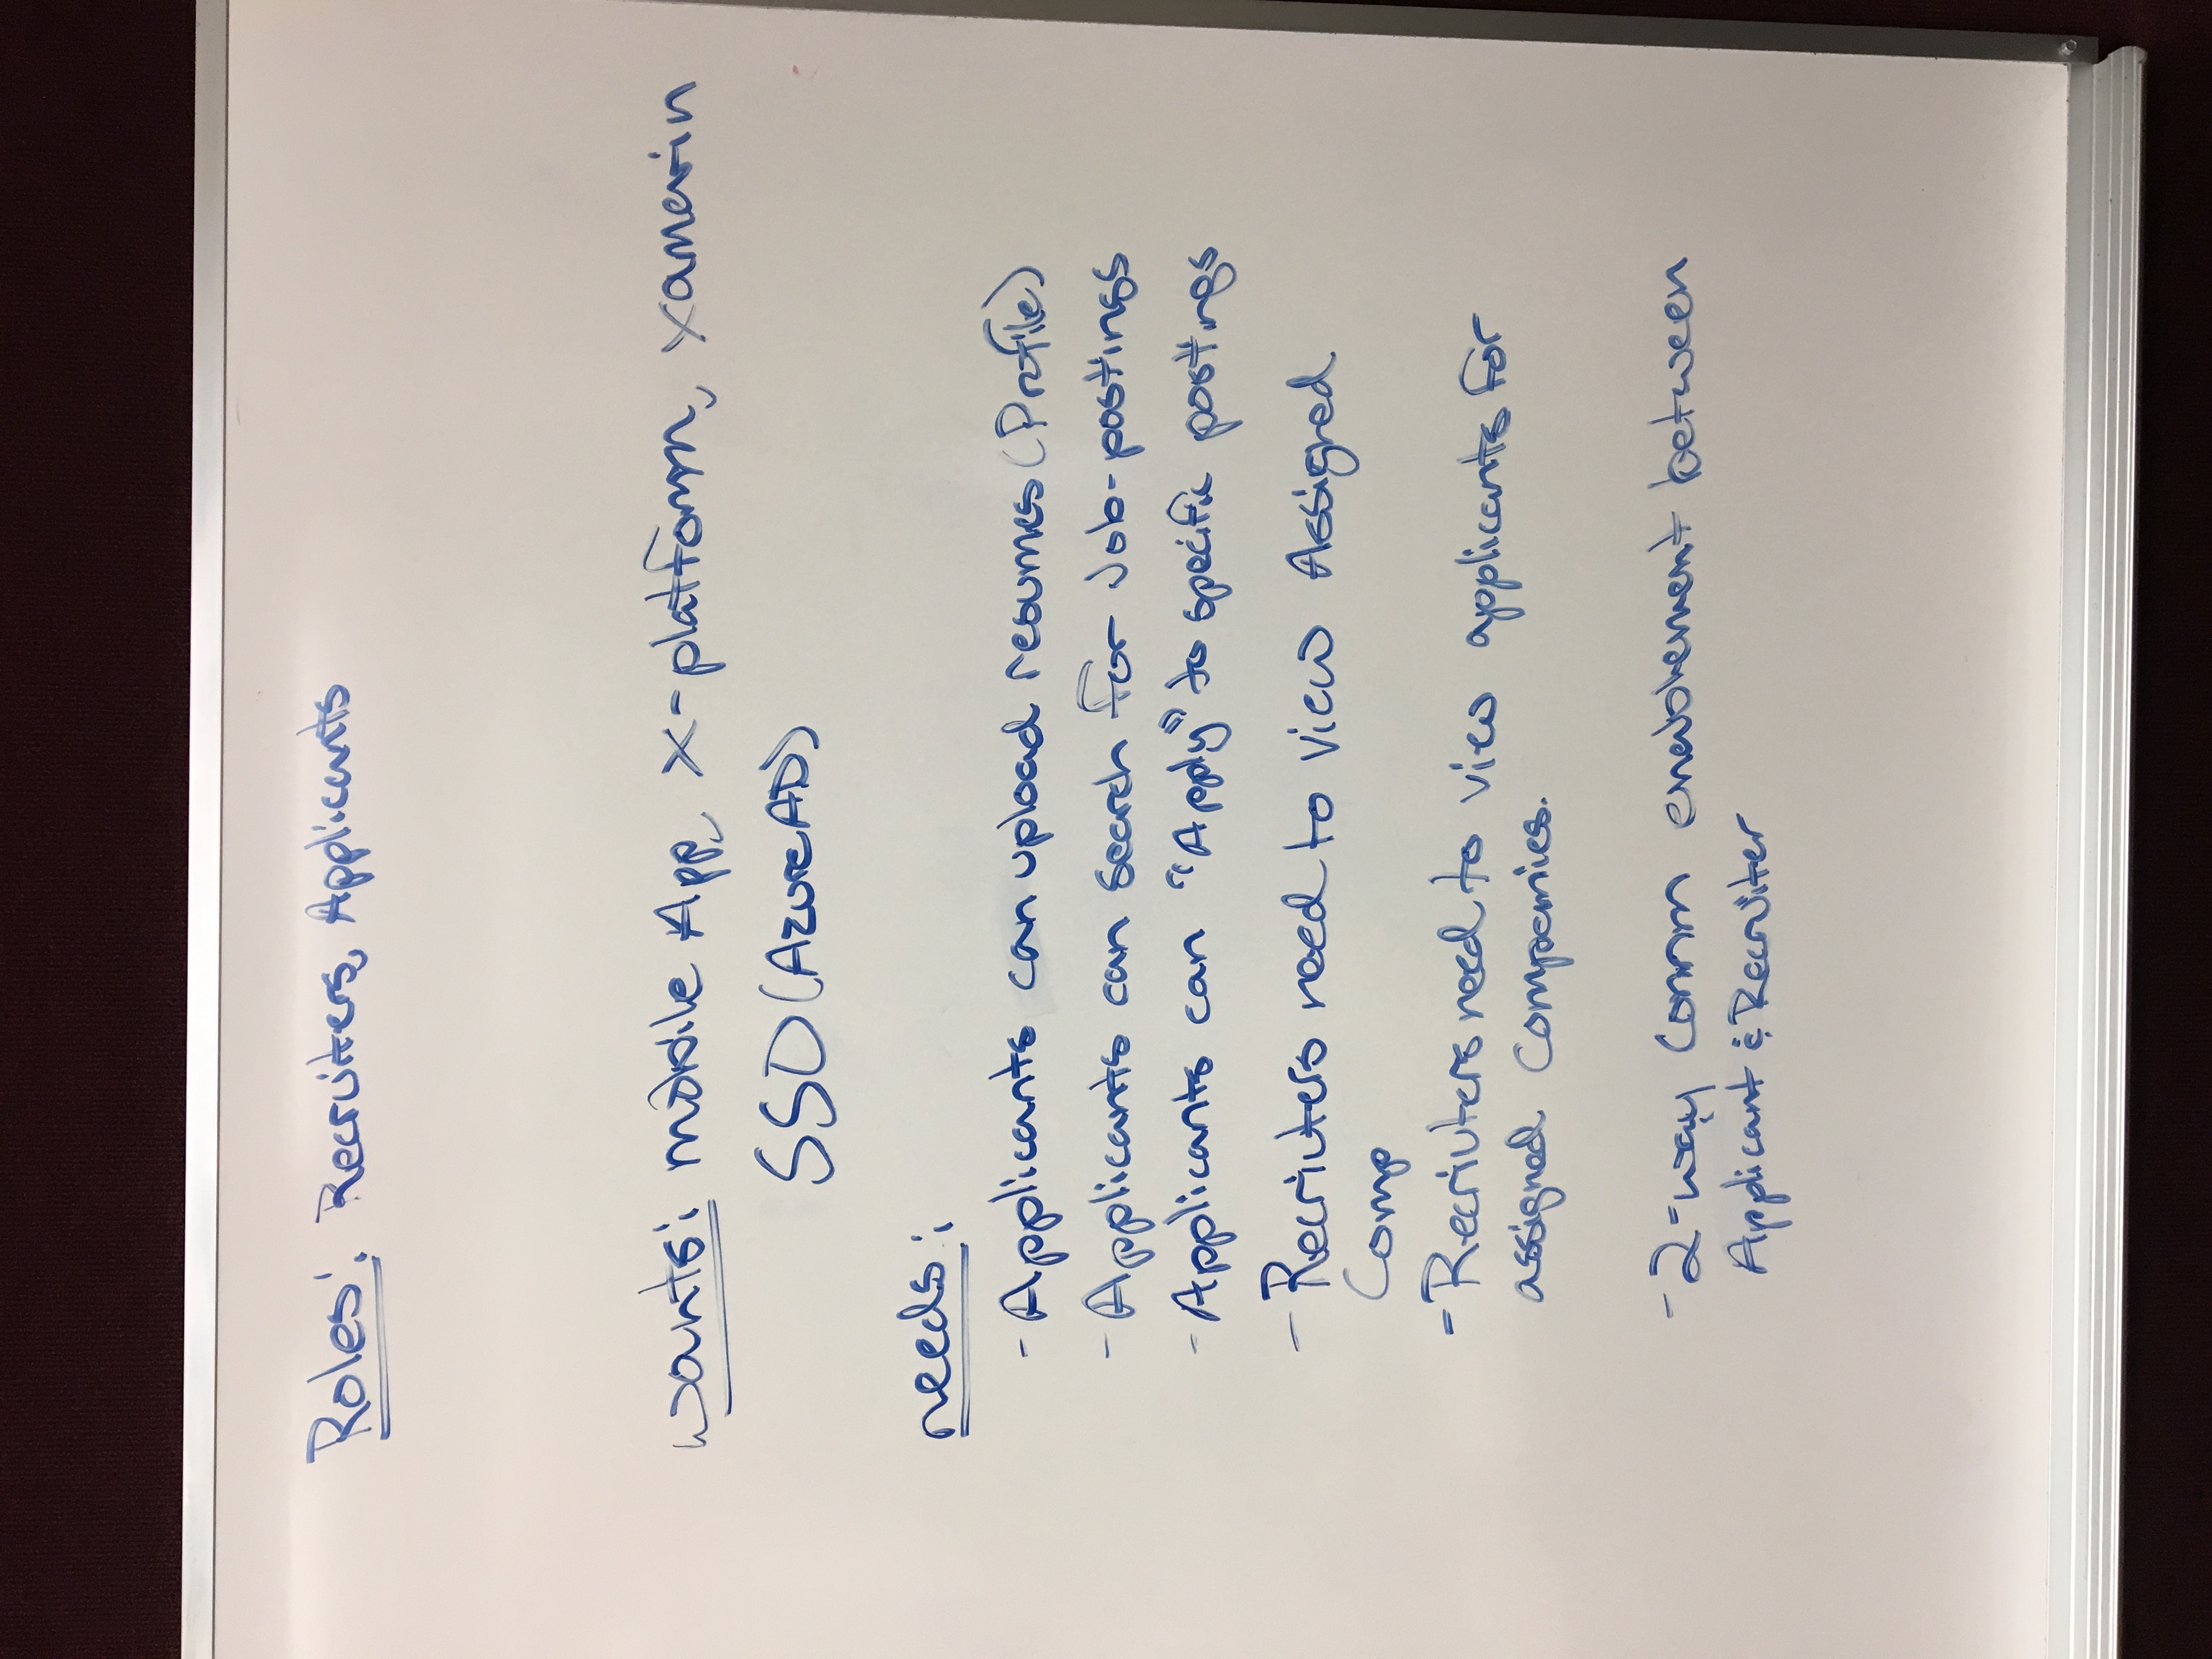 Roles: Recruiters, Applicants
wants: mobile App, X-platform, Xamarin
SSO (Azure AD)
needs:
- Applicants can upload resumes (Profile)
- Applicants can search for Job-postings
- Applicants can "Apply" to specific postings
- Recriuters need to view Assigned
Comp
- Recriuters need to view applicants for
assigned Companies.
- 2-way Comm enablement between
Applicant & Recruiter